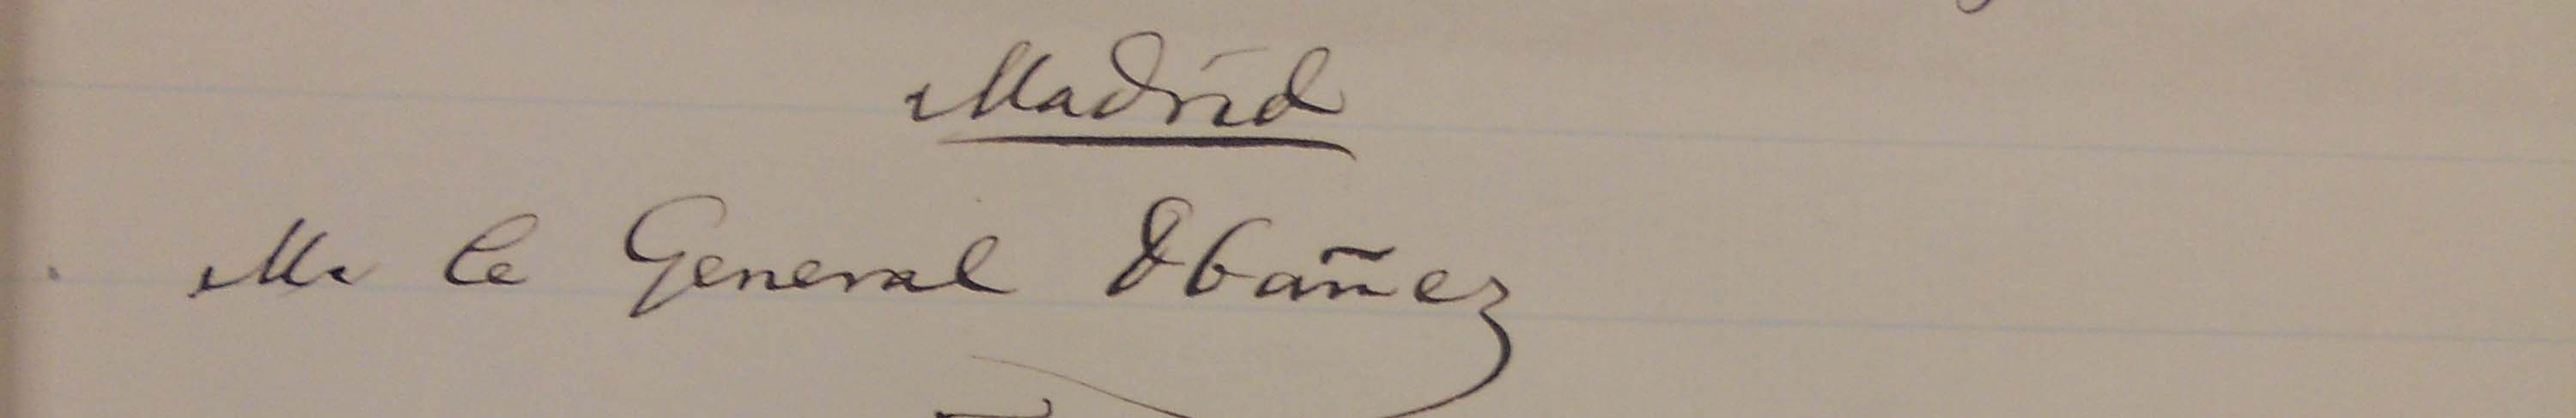 Madrid
Mr le General Ibañez